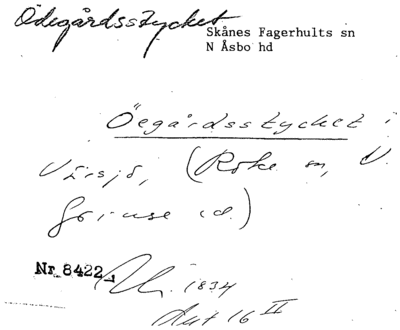 Ödegårdsstycket
Skånes Fagerhults sn
N Åsbo hd
Öegårdsstycket i
(Röke sn, V.
Göinge
Nr 8422
1834
Akt 16 II